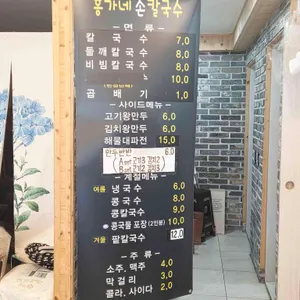 홍가네 손칼국수
- 면 류 -
칼 국 수 7,0
들깨칼국수 8,0
비빔칼국수 8,0
10,0
곱 배 기 1,0
- 사이드메뉴 -
고기왕만두 6,0
김치왕만두 6,0
해물대파전 15,0
6,0
- 계절메뉴 -
여름 냉국수 6,0
콩국수 8,0
콩칼국수 9,0
콩국물 포장(2인분) 10,0
겨울 팥칼국수 12,0
- 주 류 -
소주. 맥주 4,0
막걸리 3,0
콜라. 사이다 2,0